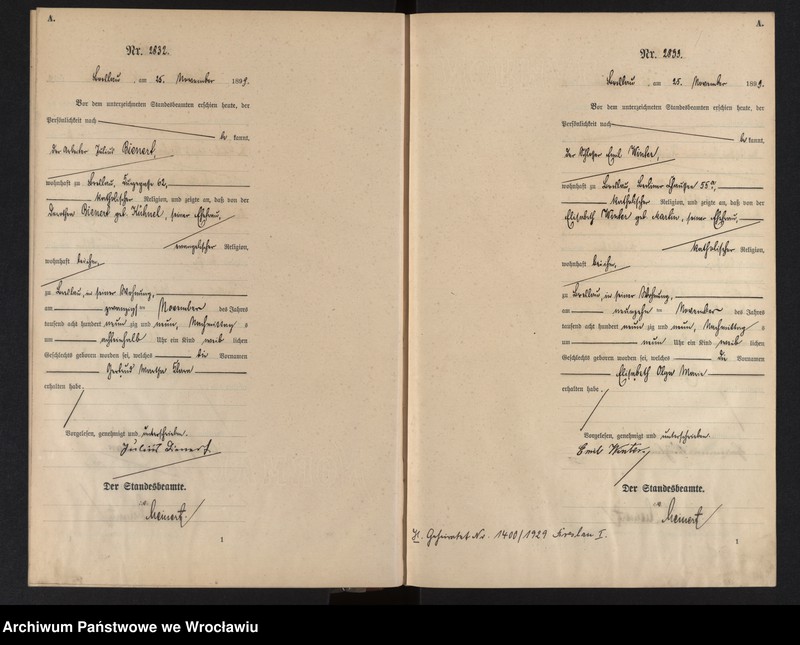 A.
Nr. 2832.
Breslau, am 25. November 1899.
Vor dem unterzeichneten Standesbeamten erschien heute, der
Persönlichkeit nach
be kannt,
der Arbeiter Julius Bienert,
wohnhaft zu Breslau, 62,
katholischer Religion, und zeigte an, daß von der
Dorothea Bienert geb. Kühnel, seiner Ehefrau,
evangelischer Religion,
wohnhaft bei ihm,
zu Breslau, in seiner Wohnung,
am zwanzigsten November des Jahres
tausend acht hundert neun zig und neun, Nachmittag s
um achteinhalb Uhr ein Kind weib lichen
Geschlechts geboren worden sei, welches die Vornamen
Gertrud Martha Klara
erhalten habe.
Vorgelesen, genehmigt und unterschrieben.
Julius Bienert.
Der Standesbeamte.
1
A.
Nr. 2833.
Breslau, am 25. November 1899.
Vor dem unterzeichneten Standesbeamten erschien heute, der
Persönlichkeit nach
be kannt,
der Schlosser Emil Winter,
wohnhaft zu Breslau, Berliner Chaussee 55a,
katholischer Religion, und zeigte an, daß von der
Elisabeth Winter geb. Martin, seiner Ehefrau,
katholischer Religion,
wohnhaft bei ihm,
zu Breslau, in seiner Wohnung,
am neunzehn ten November des Jahres
tausend acht hundert neun zig und neun, Nachmittag s
um neun Uhr ein Kind weib lichen
Geschlechts geboren worden sei, welches die Vornamen
Elisabeth Olga Marie
erhalten habe.
Vorgelesen, genehmigt und unterschrieben.
Emil Winter.
Der Standesbeamte.
1
H. Geheiratet Nr. 1400/1929 Breslau I.
Archiwum Państwowe we Wrocławiu